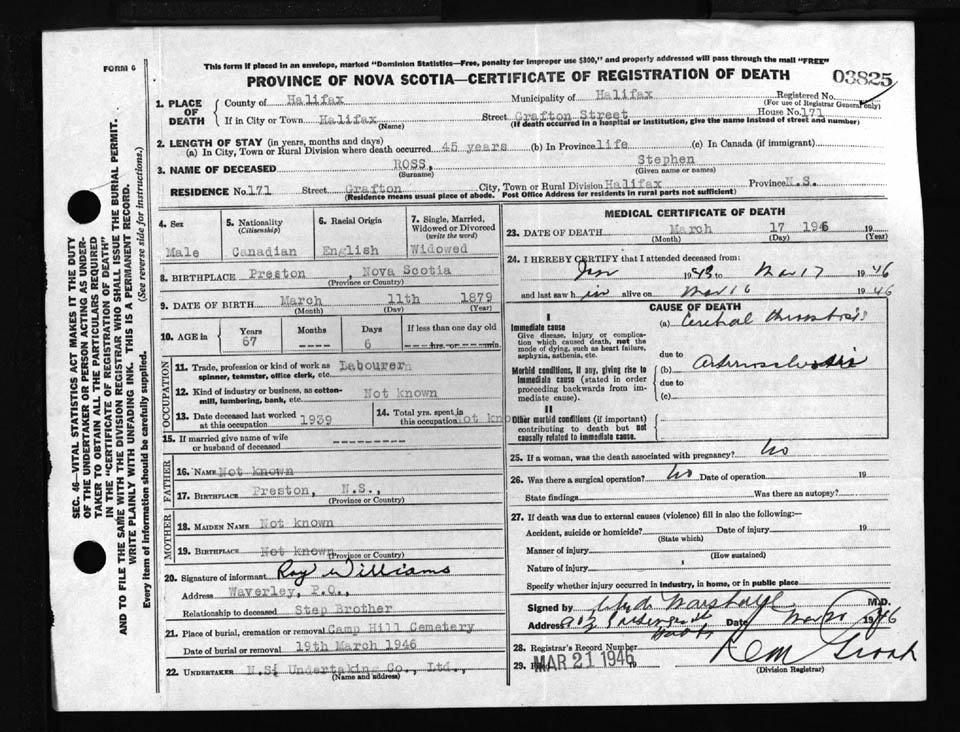 This form if placed in an envelope, marked "Dominion Statistics—Free, penalty for improper use $300," and property addressed will pass through the mail "FREE"
FORM 6
PROVINCE OF NOVA SCOTIA—CERTIFICATE OF REGISTRATION OF DEATH
03825
1. PLACE OF DEATH
County of Halifax Municipality of Halifax Registered No.
(For use of Registrar General only)
If in City or Town Halifax Street Grafton Street House No. 171
(Name) (If death occurred in a hospital or institution, give the name instead of street and number)
2. LENGTH OF STAY (in years, months and days)
(a) In City, Town or Rural Division where death occurred 45 years (b) In Province life (c) In Canada (if immigrant)
3. NAME OF DECEASED ROSS, Stephen
(Surname) (Given name or names)
RESIDENCE No. 171 Street Grafton City, Town or Rural Division Halifax Province N.S.
(Residence means usual place of abode. Post Office Address for residents in rural parts not sufficient)
4. Sex
Male
5. Nationality
(Citizenship)
Canadian
6. Racial Origin
English
7. Single, Married, Widowed or Divorced
(write the word)
Widowed
8. BIRTHPLACE Preston, Nova Scotia
(Province or Country)
9. DATE OF BIRTH March 11th 1879
(Month) (Day) (Year)
10. AGE in
Years Months Days If less than one day old
67 ---- 6 ---hrs. or ---min.
OCCUPATION
11. Trade, profession or kind of work as spinner, teamster, office clerk, etc. Labourer
12. Kind of industry or business, as cotton-mill, lumbering, bank, etc. Not known
13. Date deceased last worked at this occupation 1939
14. Total yrs. spent in this occupation not known
15. If married give name of wife or husband of deceased ---------
FATHER
16. NAME Not known
17. BIRTHPLACE Preston, N.S.,
(Province or Country)
MOTHER
18. MAIDEN NAME Not known
19. BIRTHPLACE Not known
(Province or Country)
20. Signature of informant Roy Williams
Address Waverley, P.O.,
Relationship to deceased Step Brother
21. Place of burial, cremation or removal Camp Hill Cemetery
Date of burial or removal 19th March 1946
22. UNDERTAKER N.S. Undertaking Co., Ltd.,
(Name and address)
MEDICAL CERTIFICATE OF DEATH
23. DATE OF DEATH March 17 1946 19
(Month) (Day) (Year)
24. I HEREBY CERTIFY that I attended deceased from:
Jan 1943 to Mar 17 1946
and last saw him alive on Mar 16 1946
CAUSE OF DEATH
I
Immediate cause
Give disease, injury or complication which caused death, not the mode of dying, such as heart failure, asphyxia, asthenia, etc.
(a) Cerebral thrombosis
due to
Morbid conditions, if any, giving rise to immediate cause (stated in order proceeding backwards from immediate cause).
(b) Arteriosclerosis
due to
(c)
II
Other morbid conditions (if important) contributing to death but not causally related to immediate cause.
25. If a woman, was the death associated with pregnancy? No
26. Was there a surgical operation? No Date of operation 19
State findings Was there an autopsy?
27. If death was due to external causes (violence) fill in also the following:—
Accident, suicide or homicide? Date of injury 19
(State which)
Manner of injury
(How sustained)
Nature of injury
Specify whether injury occurred in industry, in home, or in public place
Signed by Marshall M.D.
Address Date Mar 1946
28. Registrar's Record Number
29. MAR 21 1946
(Division Registrar)
SEC. 46—VITAL STATISTICS ACT MAKES IT THE DUTY
OF THE UNDERTAKER OR PERSON ACTING AS UNDER-
TAKER TO OBTAIN ALL THE PARTICULARS REQUIRED
IN THE "CERTIFICATE OF REGISTRATION OF DEATH"
AND TO FILE THE SAME WITH THE DIVISION REGISTRAR WHO SHALL ISSUE THE BURIAL PERMIT.
WRITE PLAINLY WITH UNFADING INK. THIS IS A PERMANENT RECORD.
Every item of Information should be carefully supplied. (See reverse side for instructions.)